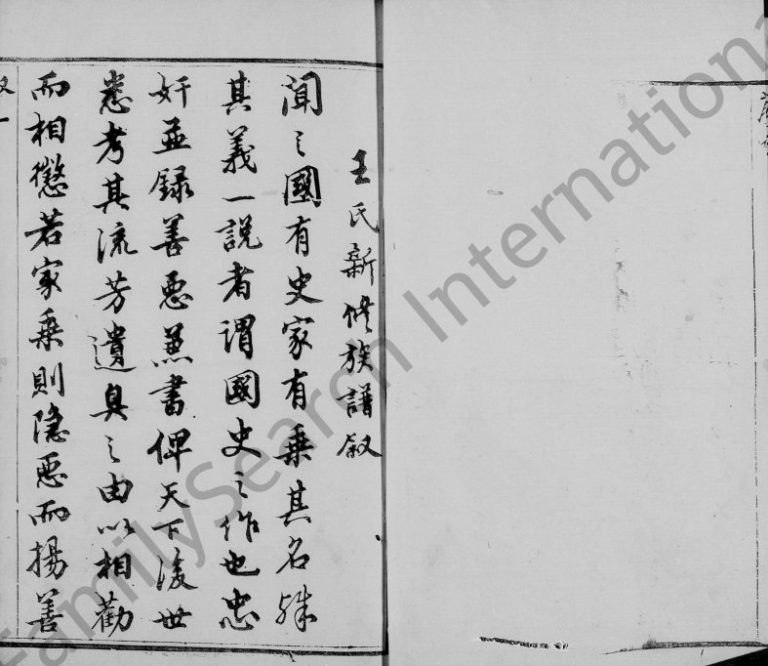 王氏新修族譜叙
聞之國有史家有乗其名殊
其義一說者謂國史之作也忠
奸並錄善惡兼書俾天下後世
悉考其流芳遺臭之由以相勸
而相懲若家乗則隱惡而揚善
叙一
FamilySearch International